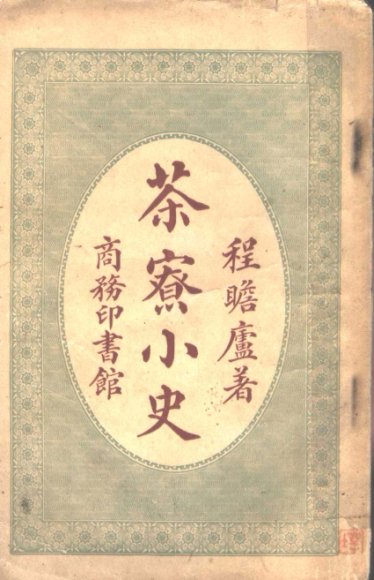 程瞻廬著
茶寮小史
商務印書館